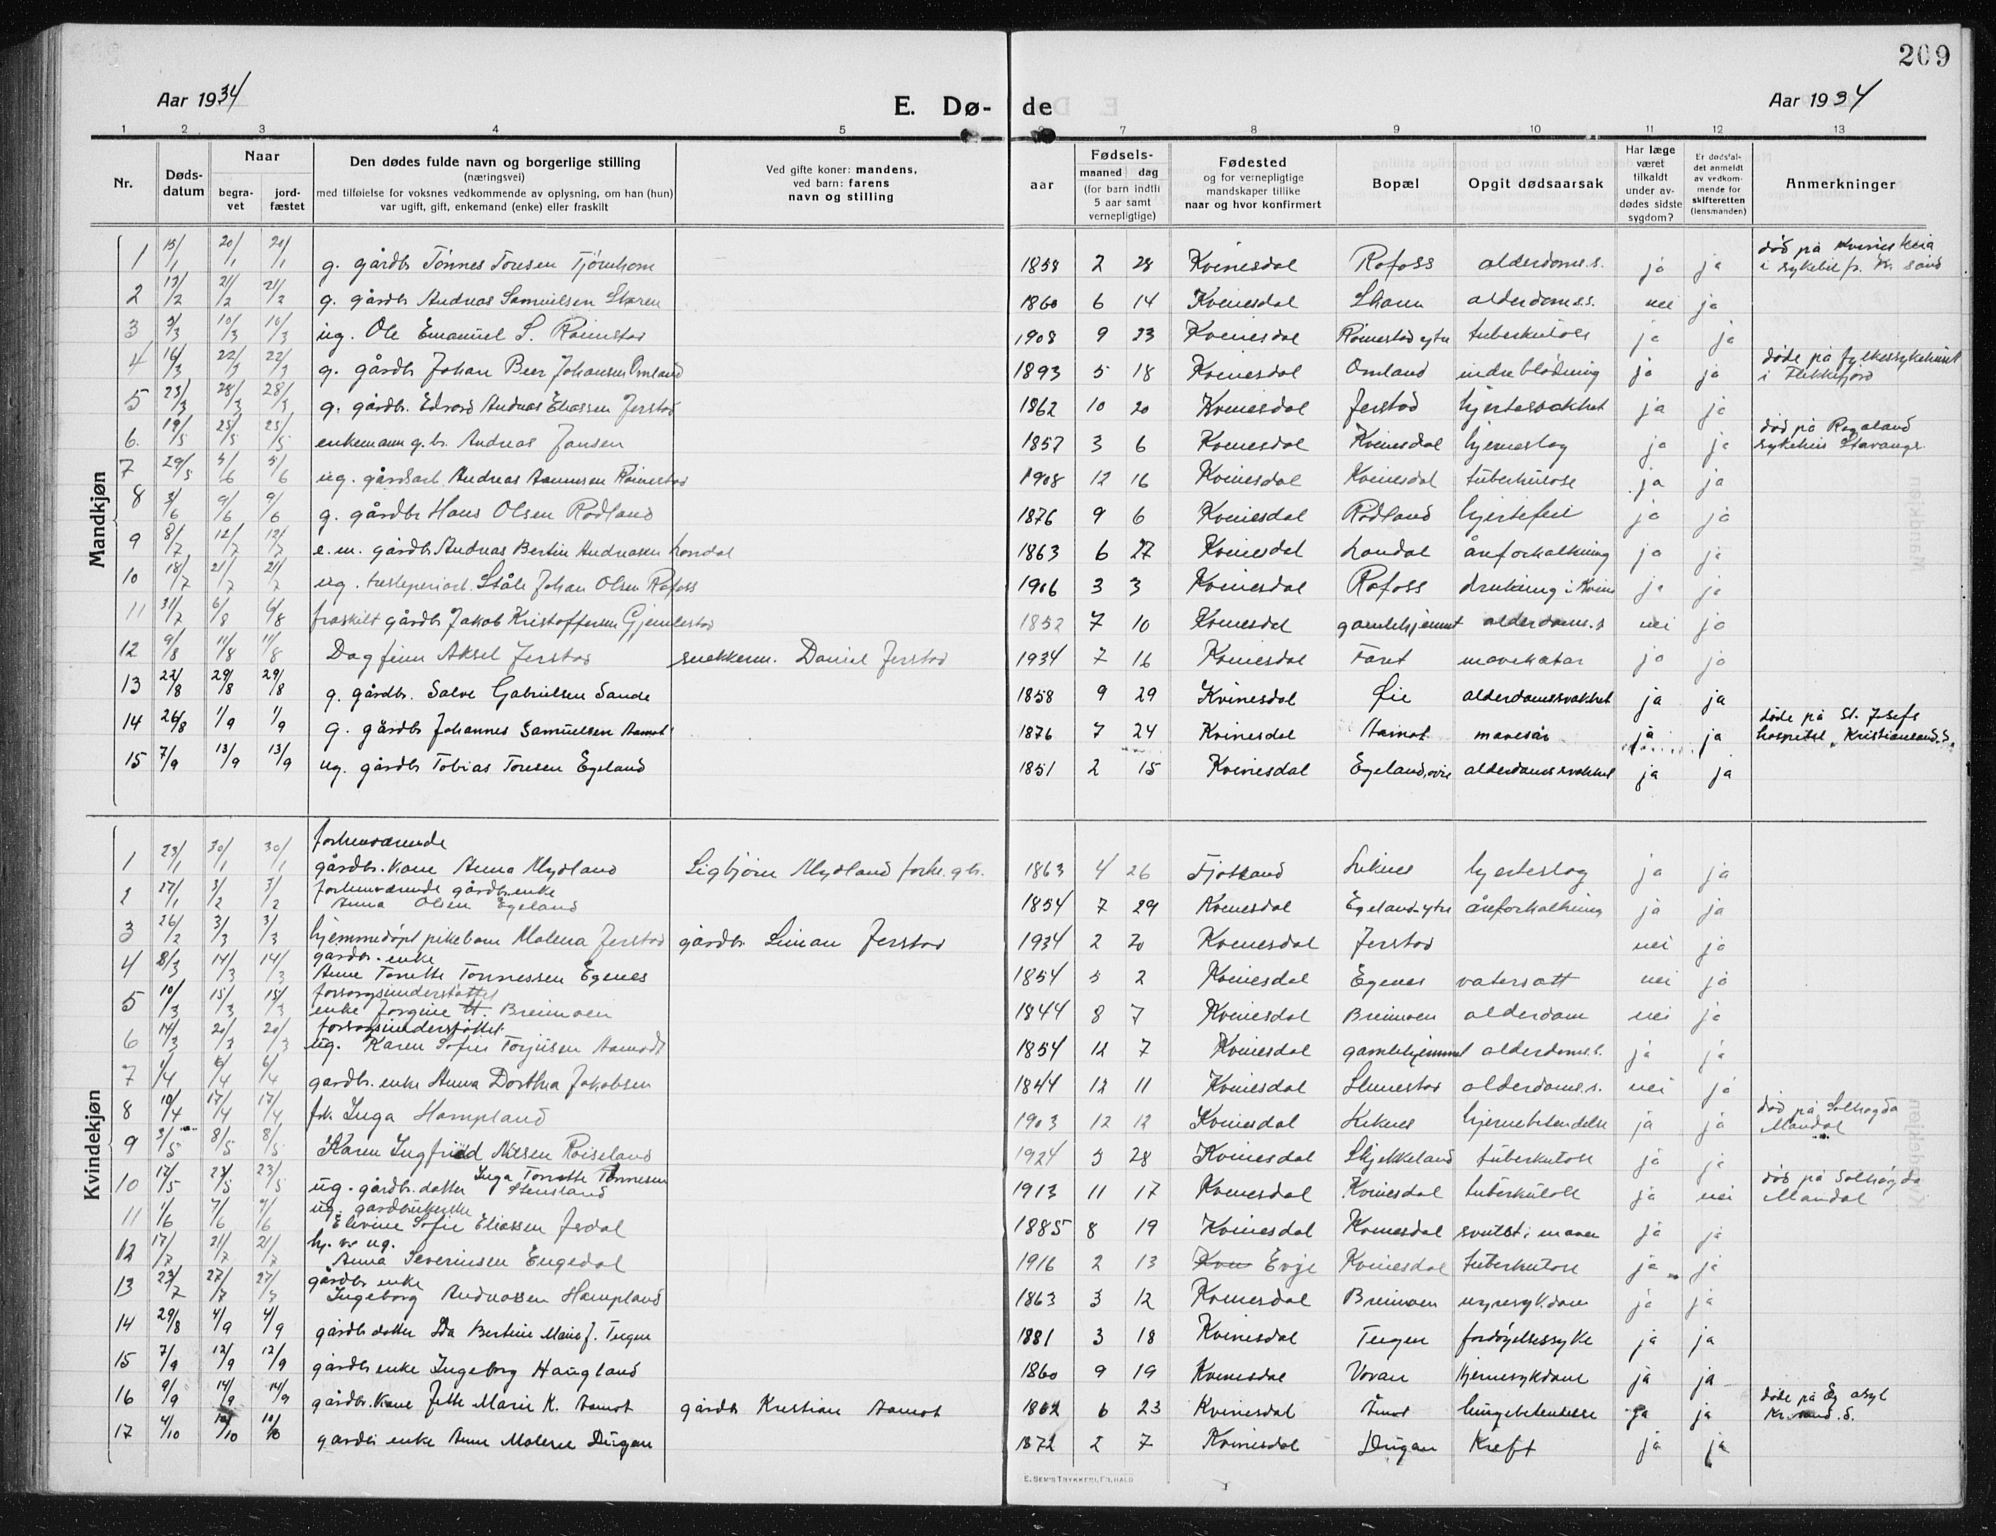 209
Aar 1934
E. Dø-de
Aar 1934
1 2 3 4 5 6 7 8 9 10 11 12 13
Nr.
Døds-datum
Naar
begra-vet
jord-fæstet
Den dødes fulde navn og borgerlige stilling
(næringsvei)
med tilføielse for voksnes vedkommende av oplysning, om han (hun)
var ugift, gift, enkemand (enke) eller fraskilt
Ved gifte koner: mandens,
ved barn: farens
navn og stilling
Fødsels-
aar
maaned dag
(for barn indtil
5 aar samt
vernepligtige)
Fødested
og for vernepligtige
mandskaper tillike
naar og hvor konfirmert
Bopæl
Opgit dødsaarsak
Har læge
været
tilkaldt
under av-
dødes sidste
sygdom?
Er dødsfal-
det anmeldt
av vedkom-
mende for
skifteretten
(lensmanden)
Anmerkninger
Mandkjøn
1 15/1 20/1 20/1 g. gårdbr Tønnes Toresen Tjørnhom 1858 2 28 Kvinesdal Rafoss alderdoms.s. ja ja død på Kvinesheia i sykebil fr. Kr. sand
2 13/2 21/2 21/2 g. gårdbr Andreas Samuelsen Skoren 1860 6 14 Kvinesdal alderdoms.s. nei ja
3 3/3 10/3 10/3 ug. Ole Emanuel S. Røinestad 1908 9 23 Kvinesdal Røinestad ytre tuberkulose ja ja
4 16/3 22/3 22/3 g. gårdbr Johan Beer Johansen Omland 1893 5 18 Kvinesdal Omland indre blødning ja ja døde på fylkessykehuset i Flekkefjord
5 23/3 28/3 28/3 g. gårdbr. Edvard Andreas Eliassen Jerstad 1862 10 20 Kvinesdal Jerstad hjertesvakhet ja ja
6. 19/5 25/5 25/5 enkemann g.br. Andreas Jansen 1857 3 6 Kvinesdal Kvinesdal hjerneslag ja ja død på Rogaland sykehus Stavanger
7 29/5 5/6 5/6 ug. gårdsarb Andreas Røinestad 1908 12 16 Kvinesdal Kvinesdal tuberkulose ja ja
8 3/6 9/6 9/6 g. gårdbr Hans Olsen Rødland 1876 9 6 Kvinesdal Rødland hjertefeil ja ja
9 8/7 12/7 12/7 e.m. gårdbr Andreas Bertin Andreassen Londal 1863 6 27 Kvinesdal Londal åreforkalkning ja ja
10 18/7 21/7 21/7 ug. Ståle Johan Olsen Rafoss 1906 3 3 Kvinesdal Rafoss drukning i Kvina ja ja
11 31/7 6/8 6/8 fraskilt gårdbr Jakob Kristoffersen Gjemlestad 1852 7 10 Kvinesdal gamlehjemmet alderdoms.s nei ja
12 9/8 11/8 11/8 Dagfinn Aksel Jerstad snekkerm. Daniel Jerstad 1934 7 16 Kvinesdal Faret mavekatar ja ja
13 22/8 29/8 29/8 g. gårdbr. Salve Gabrielsen Sande 1858 9 29 Kvinesdal Øie alderdomssvakhet ja ja
14 26/8 1/9 1/9 g. gårdbr Johannes Samuelsen Aamot 1876 7 24 Kvinesdal Aamot mavesår ja ja døde på St. Josefs hospital, Kristiansand. S.
15 7/9 13/9 13/9 ug. gårdbr Tobias Toresen Egeland 1851 2 15 Kvinesdal Egeland, øvre alderdomssvakhet ja ja
Kvindekjøn
1 23/1 30/1 30/1 forhenværende gårdbr. kone Anna Mydland Sigbjørn Mydland forh. gbr. 1863 4 26 Fjotland Liknes hjerteslag ja ja
2 27/1 3/2 3/2 forhenværende gårdbr.enke Anna Olsen Egeland 1854 7 29 Kvinesdal Egeland ytre åreforkalkning ja ja
3 26/2 3/3 3/3 hjemmedøpt pikebarn Malena Jerstad gårdbr Simon Jerstad 1934 2 20 Kvinesdal Jerstad nei ja
4 8/3 14/3 14/3 gårdbr. enke Anne Tonette Tønnessen Egenes 1854 5 2 Kvinesdal Egenes vatersott nei ja
5 10/3 15/3 15/3 forsorgsunderstøttet enke Jorgine Breimoen 1844 8 7 Kvinesdal Breimoen alderdom nei ja
6 14/3 20/3 20/3 forsorgsunderstøttet ug. Karen Sofie Torjusen Aamodt 1854 12 7 Kvinesdal gamlehjemmet alderdoms.s. ja ja
7 1/4 6/4 6/4 gardbr. enke Anna Dorthea Jakobsen 1844 12 11 Kvinesdal alderdoms.s. nei ja
8 10/4 17/4 17/4 frk. Inga Hompland 1903 12 12 Kvinesdal Liknes hjernebetendelse ja ja død på Solhøgda Mandal
9 3/5 8/5 8/5 Karen Ingfrid Nilsen Røiseland 1924 5 28 Kvinesdal Skjekkeland tuberkulose ja ja
10 17/5 23/5 23/5 ug. gårdbr. datter Inga Tonette Tønnesen Stensland 1913 11 17 Kvinesdal Kvinesdal tuberkulose ja nei død på Solhøgda Mandal
11 1/6 7/6 7/6 ug. gardbruker Elevine Sofie Eliassen Jerdal 1885 8 19 Kvinesdal Kvinesdal svulst i maven ja ja
12 17/7 21/7 21/7 ug. Anna Severinsen Engedal 1916 2 13 Evje Kvinesdal tuberkulose ja ja
13 23/7 27/7 27/7 gårdbr enke Ingeborg Andreassen Hompland 1863 3 12 Kvinesdal Breimoen nyresykdom ja ja
14 29/8 4/9 4/9 gårdbr datter Ida Bertine Marie J. Teigen 1881 3 18 Kvinesdal Teigen fordøyelsessyke ja ja
15 7/9 12/9 12/9 gårdbr enke Ingeborg Haugland 1860 9 19 Kvinesdal Voran hjernesykdom ja ja
16 9/9 14/9 14/9 gårdbr. kone Jette Marie K. Aamot gårdbr Kristian Aamot 1862 6 23 Kvinesdal Åmot lungebetendelse ja ja døde på Eg asyl Kr.sand. S.
17 4/10 10/10 10/10 gardbr enke Anne Malene Dugan 1872 2 7 Kvinesdal Dugan Kreft ja ja
E. SEM'S TRYKKERI, FR.HALD